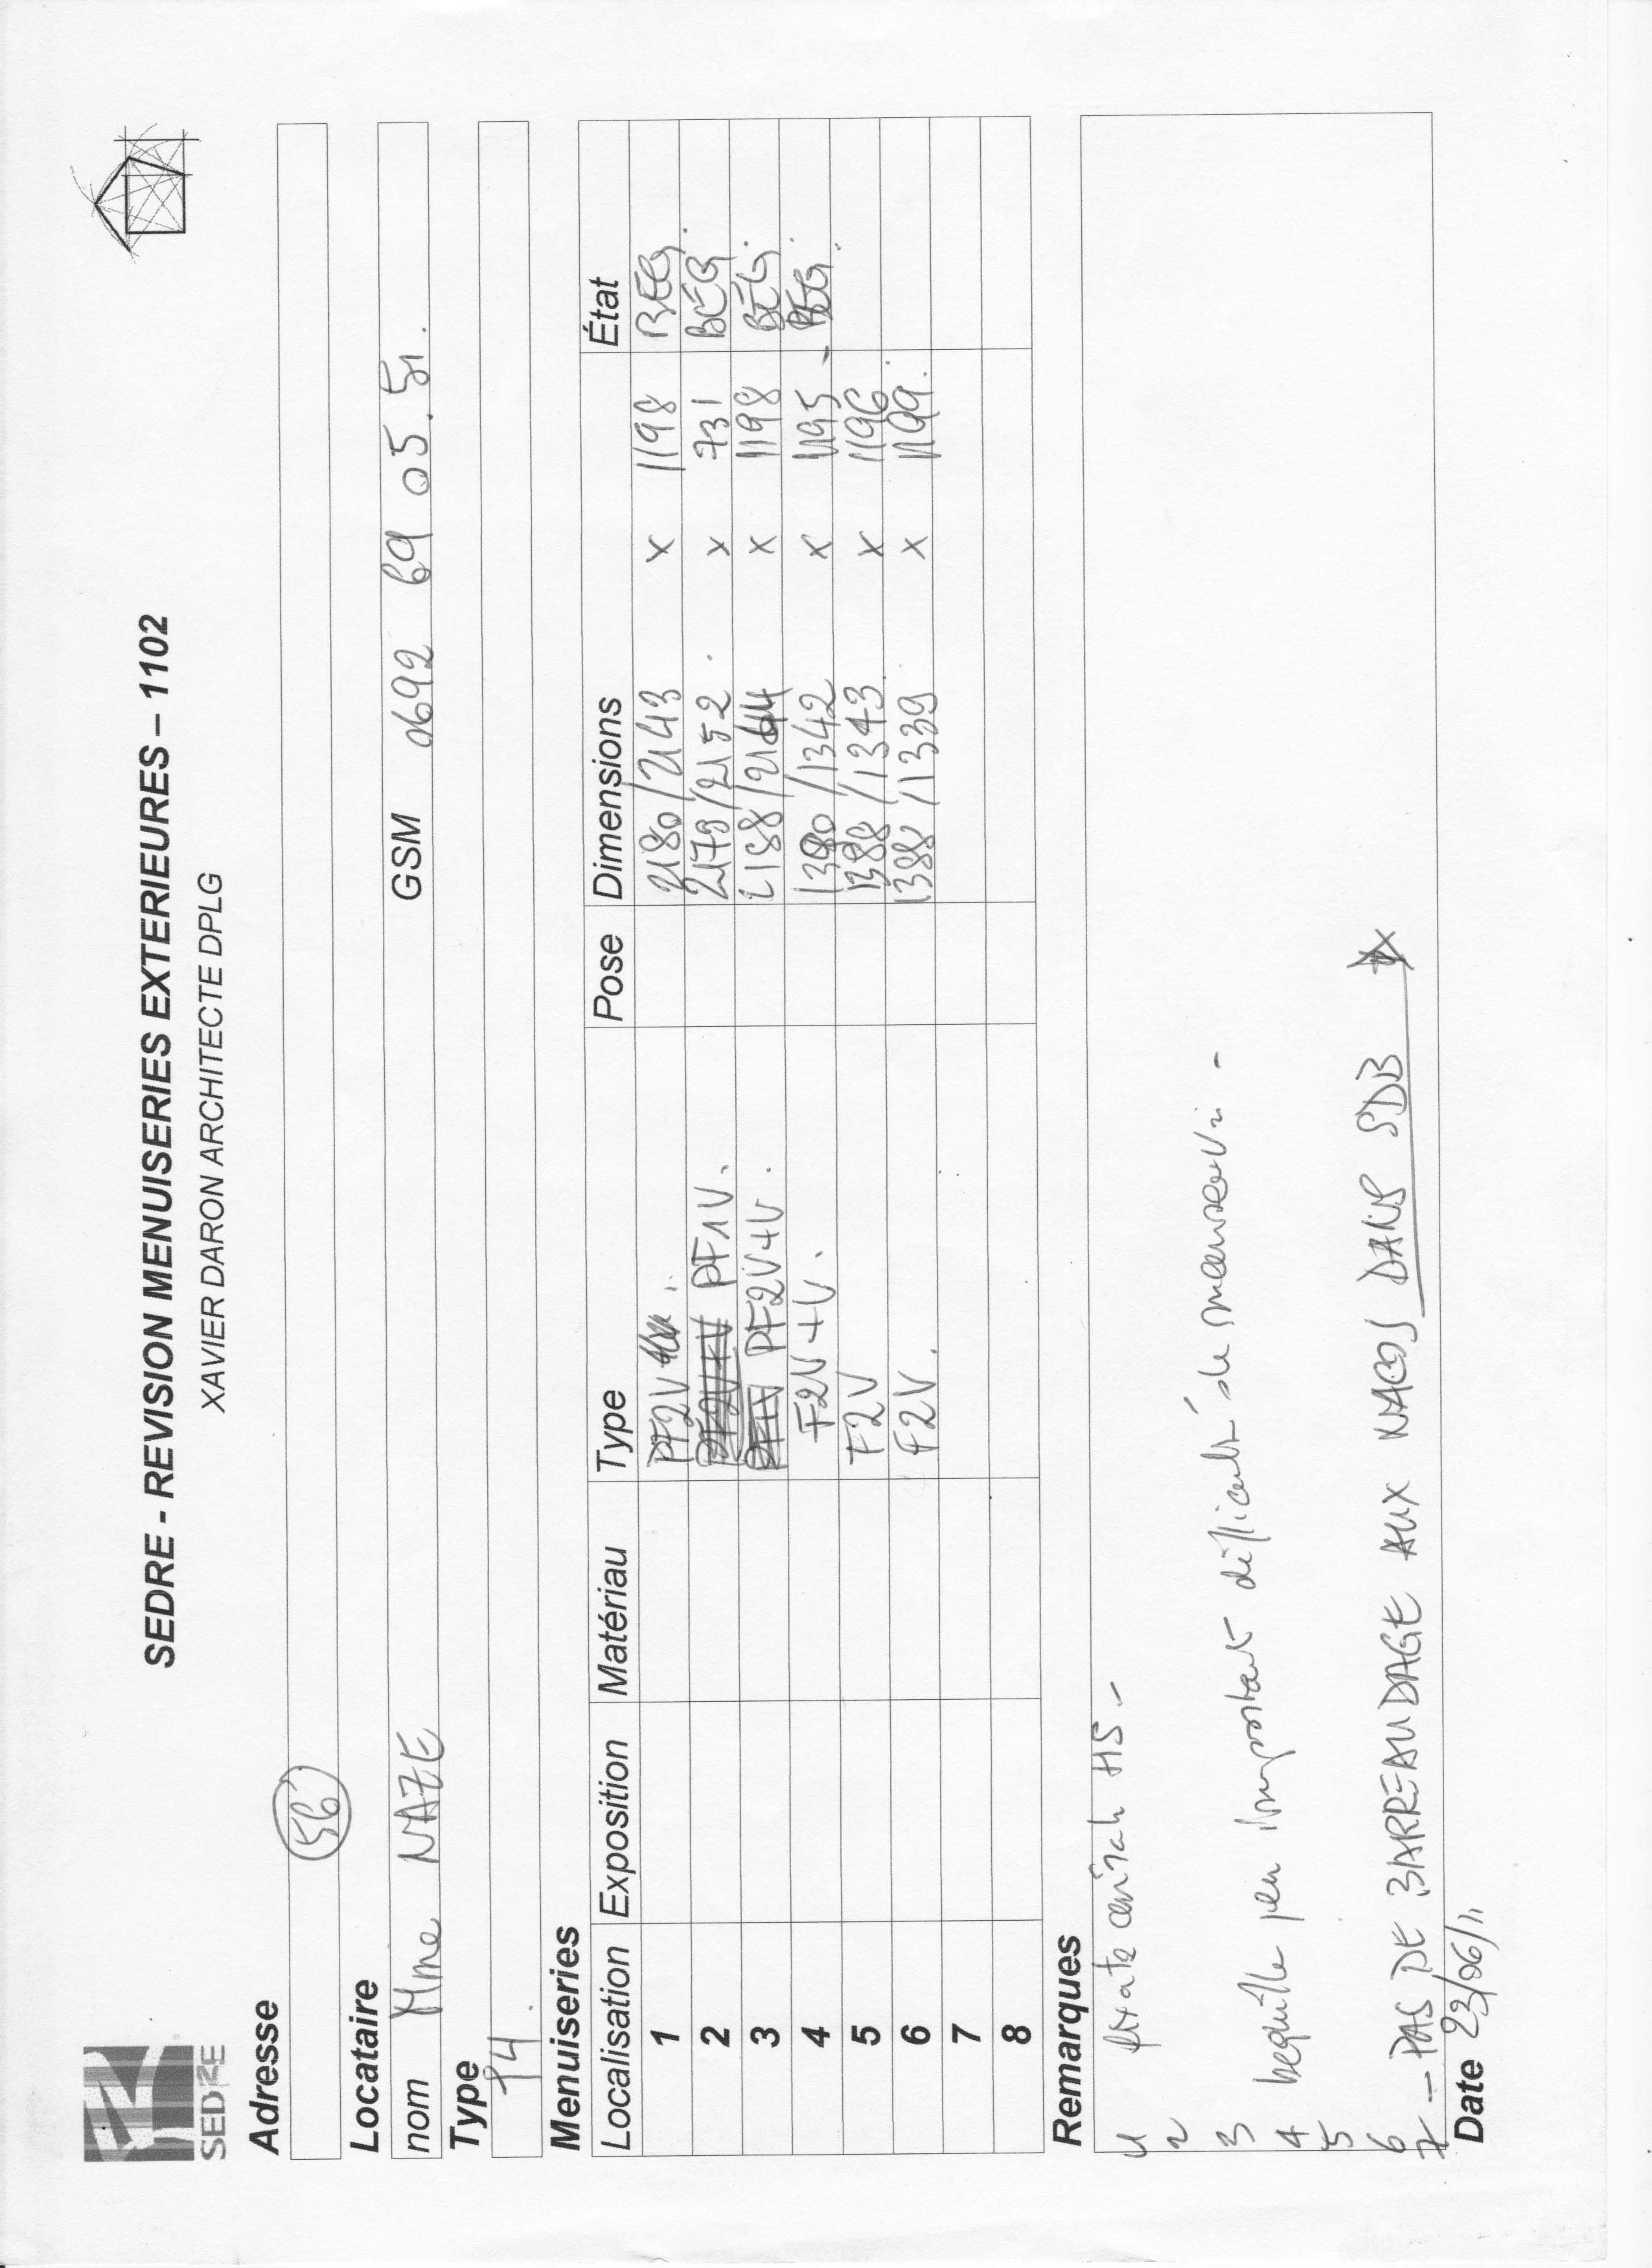 SEDRE
SEDRE - REVISION MENUISERIES EXTERIEURES – 1102
XAVIER DARON ARCHITECTE DPLG
Adresse
56
Locataire
nom Mme NAZE GSM 0692 69 05 51.
Type
T4
Menuiseries
Localisation Exposition Matériau Type Pose Dimensions État
1 PF2V 2180/2143 x 1198 BEG
2 PF1V. 2179/2152. x 731 BEG.
3 PF2V+V. 2188/2144 x 1198 BEG.
4 F2V+V. 1390/1342 x 1195 - BEG.
5 F2V 1388/1343 x 1196
6 F2V. 1388/1339 x 1199.
7
8
Remarques
1 HS -
2
3 béquille peu important difficulté de manoeuvre -
4
5
6
- PAS DE BARREAUDAGE AUX NACOS DANS SDB
Date 23/06/11